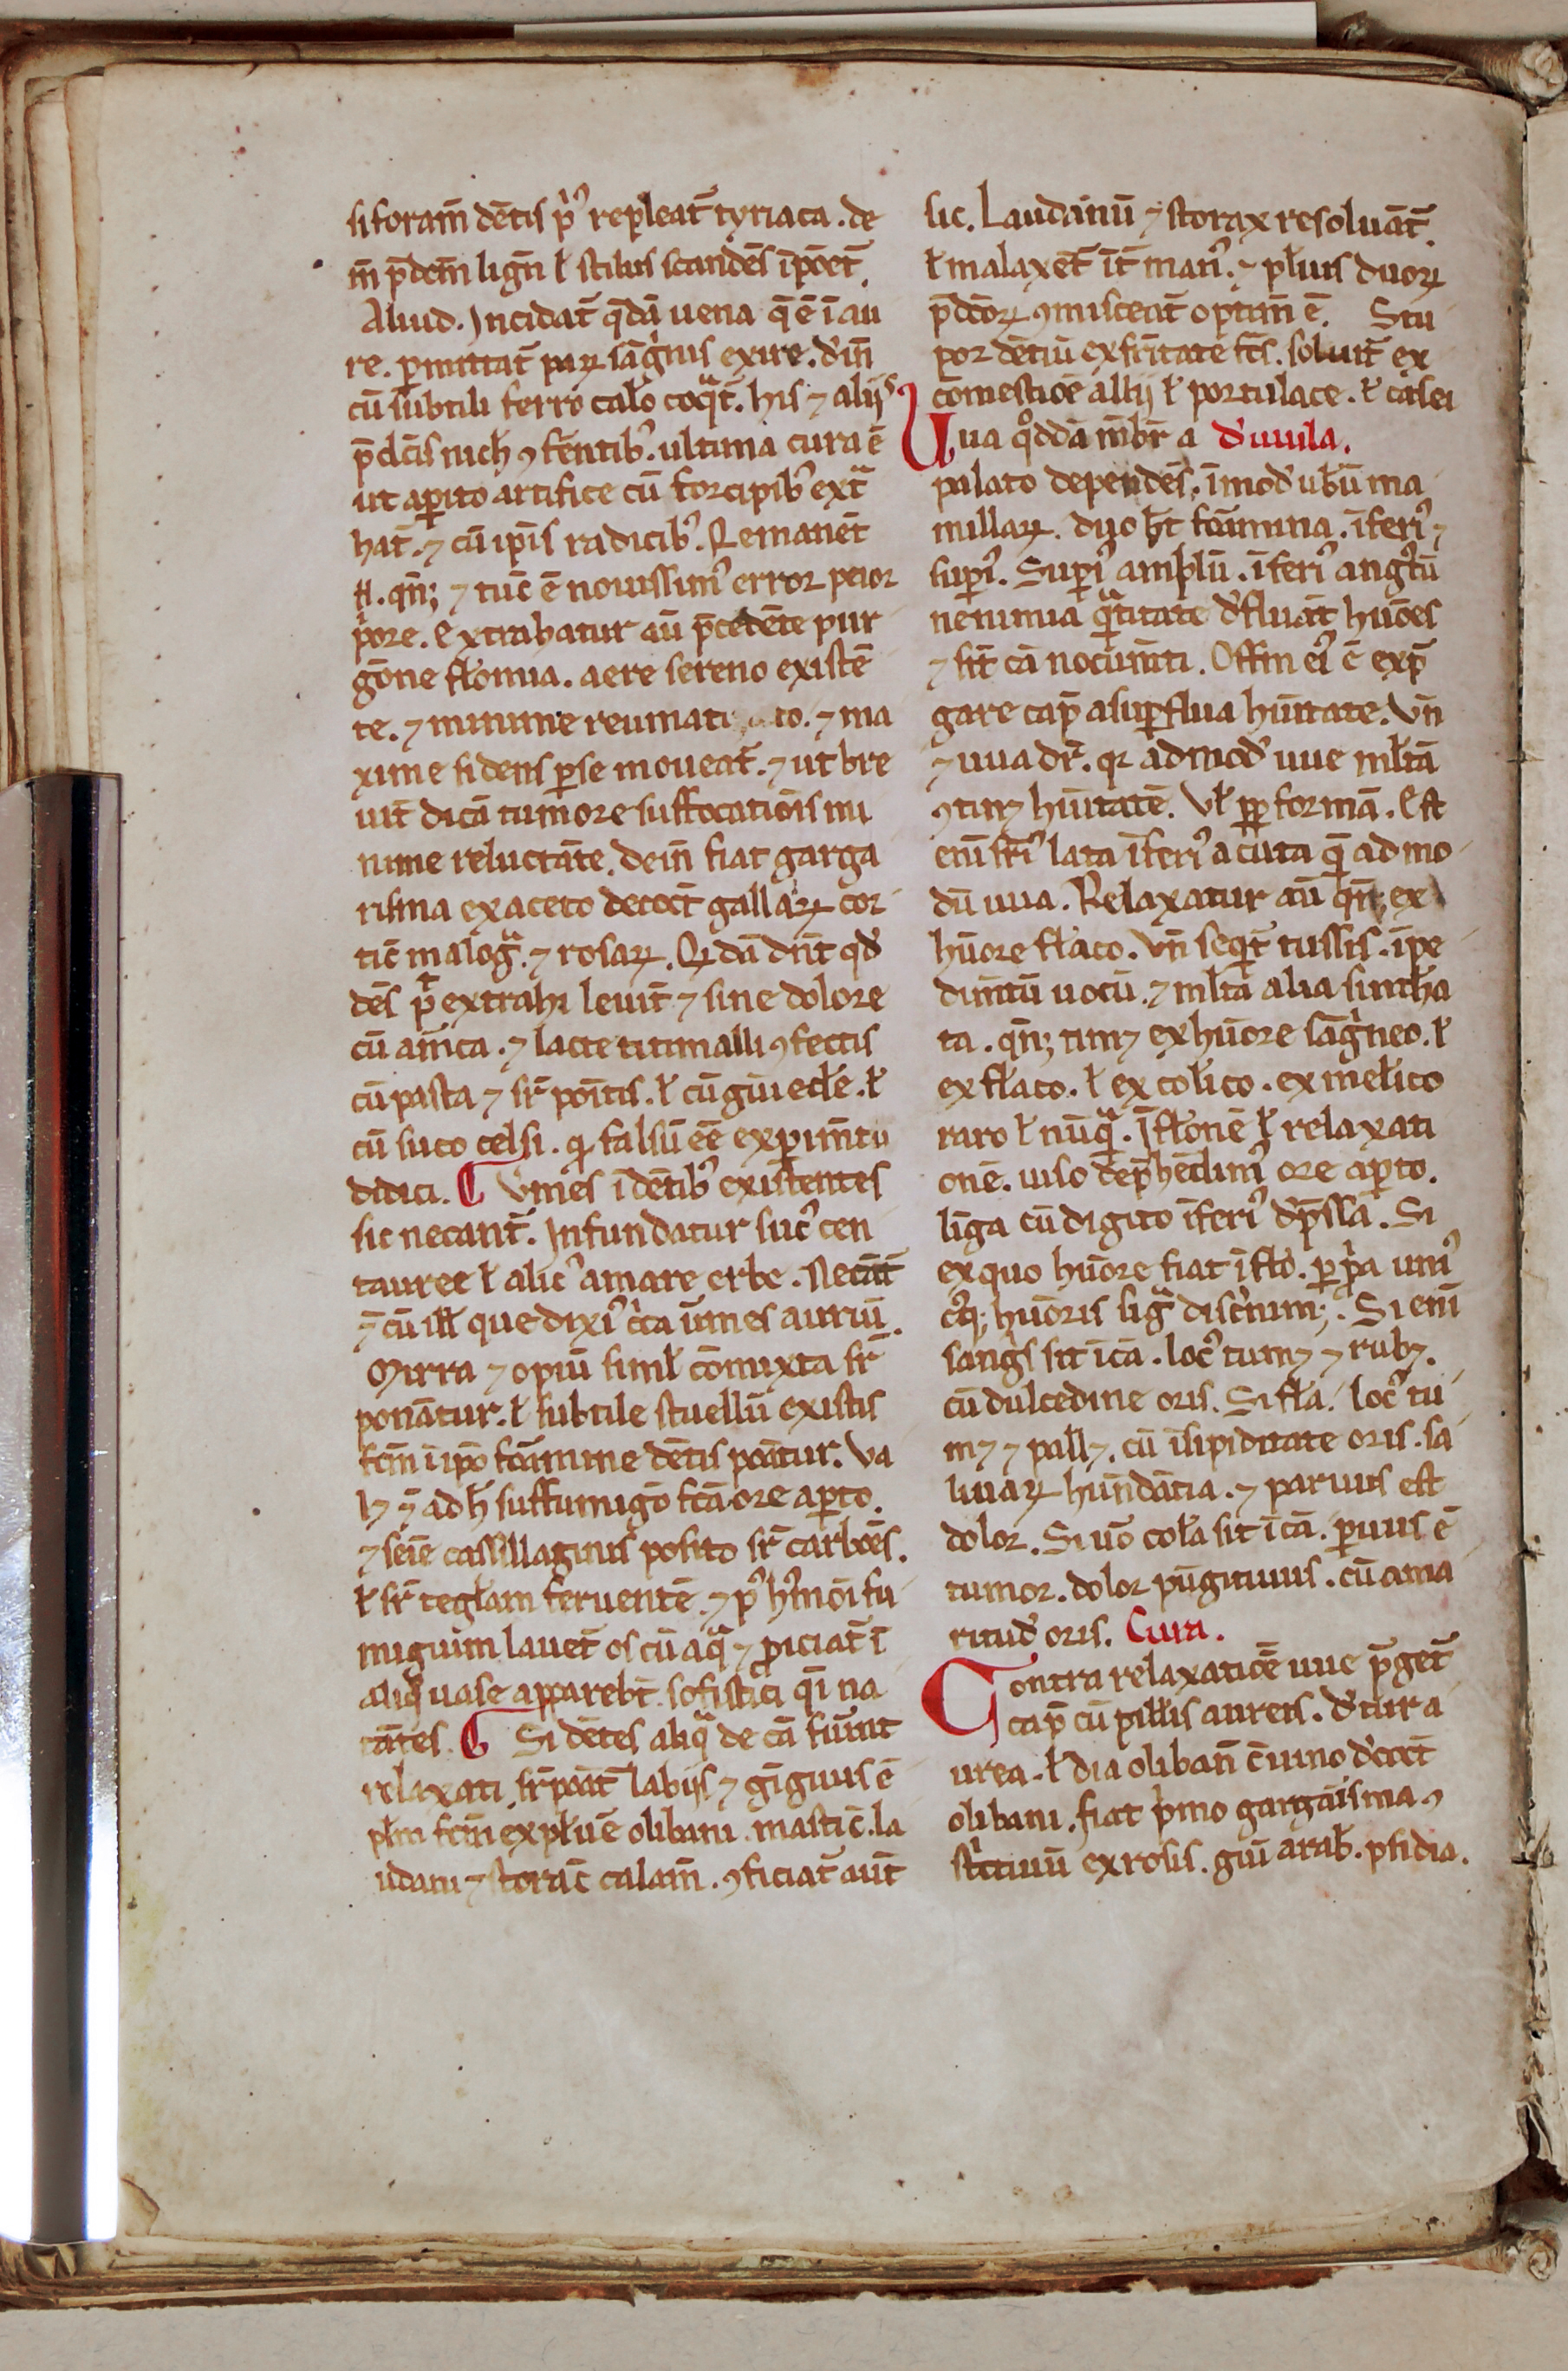 si foram̄ dētis p᷒ repleat᷑ tyriaca. de
m̄ p̄dem̄ lign̄ ł stilus scandēs īpōet᷑.
Aliud. Incidat᷑ q̄dā uena q̄ ē ī au
re. ꝑmittat᷑ paꝝ sāgͥnis exire. d̓in̄
cū subtili ferro cał̓o coqͣt᷑. his ⁊ alijs
p̄dc̄is nich̄ ꝯferentib᷒. ultima cura ē
ut aꝑito artifice cū forcipib᷒ extͣ
hat᷑. ⁊ cū ip̄is radicib᷒. Remanēt
.qn̄ꝫ ⁊ tūc ē nouissim᷒ error peior
pͥore. Extrahatur aū p̄cedēte pur
gōne fl̄omia. aere sereno existē
te. ⁊ minime reumati to. ⁊ ma
xime si dens ꝑ se moueat᷑. ⁊ ut bre
uit᷑ dicā tumore suffocatiōis mi
nime reluctāte. dein̄ fiat garga
risma ex aceto decoct̄ gallaꝝ cor
tic̄ malogͣ. ⁊ rosaꝝ. Q̇dā dn̄t qd̓
dēs pt̄ extrahi leuit᷑ ⁊ sine dolore
cū am̄ca. ⁊ lacte titimalli ꝯfectis
cū pasta ⁊ sr̄ poītis. ł cū gūi edē. ł
cū suco celsi. ꝙ falsū eē experim̄to
didici. ¶ Vm̄es ī dētib᷒ existentes
sic necant᷑. Infundatur suc᷒ cen
tauree ł alic᷒ amare erbe. Necāt᷑
⁊̄ cū ill̄ que dixi᷒ cͥca um̄es auriū.
Mirra ⁊ opiū siml̄ cōmixta sr̄
ponātur. ł subtile stuellū existis
fcm̄ ī ipō foramine dētis poātur. Va
lꝫ ⁊̄ ad h̄ suffumigō fcā ore aꝑto.
⁊ seīe cassillaginis posito sr̄ carbōes.
ł sr̄ tegłam feruentē. ⁊ p᷒ h᷒moī fu
migiūm lauet᷑ os cū aqͣ ⁊ ꝓiciat᷑ ī
aliqͦ uase apparebt̄ sofistici qͣi na
tātes. ¶ Si dētes aliqͣ de cā fuerīt
relaxati sr̄poāt᷑ labijs ⁊ gīgiuis ē
płm fcm̄ ex płuē olibani. mastic̄. la
udani ⁊ storac̄ calam̄. ꝯficiat᷑ aūt
sic. Laudanū ⁊ storax resoluāt᷑.
ł malaxēt᷑ īt᷑ man᷒. ⁊ płuis duoꝝ
p̄dcōꝝ ꝯmisceat᷑ optim̄ ē. Stu
por dētiū ex frītate fc̄s. soluit᷑ ex
comestioē allij ł portulace. ł casei
Uua qͦddā mēbr̄ a d̓ uuila.
palato dependēs. ī mod̓ ub̄ū ma
millaꝝ. duo hn̄t foramina. īferi᷒ ⁊
suꝑi᷒. Suꝑi᷒ amplū. īferi᷒ angͣtū
ne nimia qͣtitate d̓fluāt hūōes
⁊ sīt cā nocum̄ti. Offm̄ ei᷒ ē expͬ
gare cap̄ a suꝑflua hūitate. Vn̄
⁊ uua dr̄. qꝛ ad mod̓ uue młtā
ꝯtinꝫ hūitatē. Vł ꝓpt̄ formā. Est
enī sr̄i᷒ lata īferi᷒ acuta q̄ ad mo
dū uua. Relaxatur aū qn̄ꝫ ex
hūore fl̄aco. Vn̄ seqͥt᷑ tussis. īpe
dimm̄tū uocū. ⁊ młta alia sintha
ta. qn̄ꝫ timꝫ ex hūore sāgͥneo. ł
ex fl̄aco. ł ex col̄ico. ex meł̄ico
raro ł nūqͣ. Īfłonē ł relaxati
onē. uiso dep̄hēdim᷒ ore aꝑto.
līga cū digito īferi᷒ dep̄ssa. Si
ex quo hūore fiat īflō. ꝑ ꝓpͥa uni᷒
c᷒qꝫ hūoris signͣ discͥnimꝫ. Si enī
sangͥs sit ī cā. loc᷒ tumꝫ ⁊ rubꝫ.
cū dulcedine oris. Si fl̄a. loc᷒ tu
mꝫ ⁊ pallꝫ. cū īsipiditate oris. sa
liuaꝝ hūn̄dātia. ⁊ paruus est
dolor. Si uō coła sit ī cā. ꝑuus ē
tumor. dolor pūgitiuus. cū ama
ritud̓ oris. Cura.
Contra relaxatiōē uue p̄get᷑
cap̄ cū pillis aureis. d̓ tur a
urea. ł dia oliban̄ cū uino d̓coct̄
olibani. fiat pͥmo gargarisma ꝯ
strictiuū ex rosis. gūi arab̄. psidia.